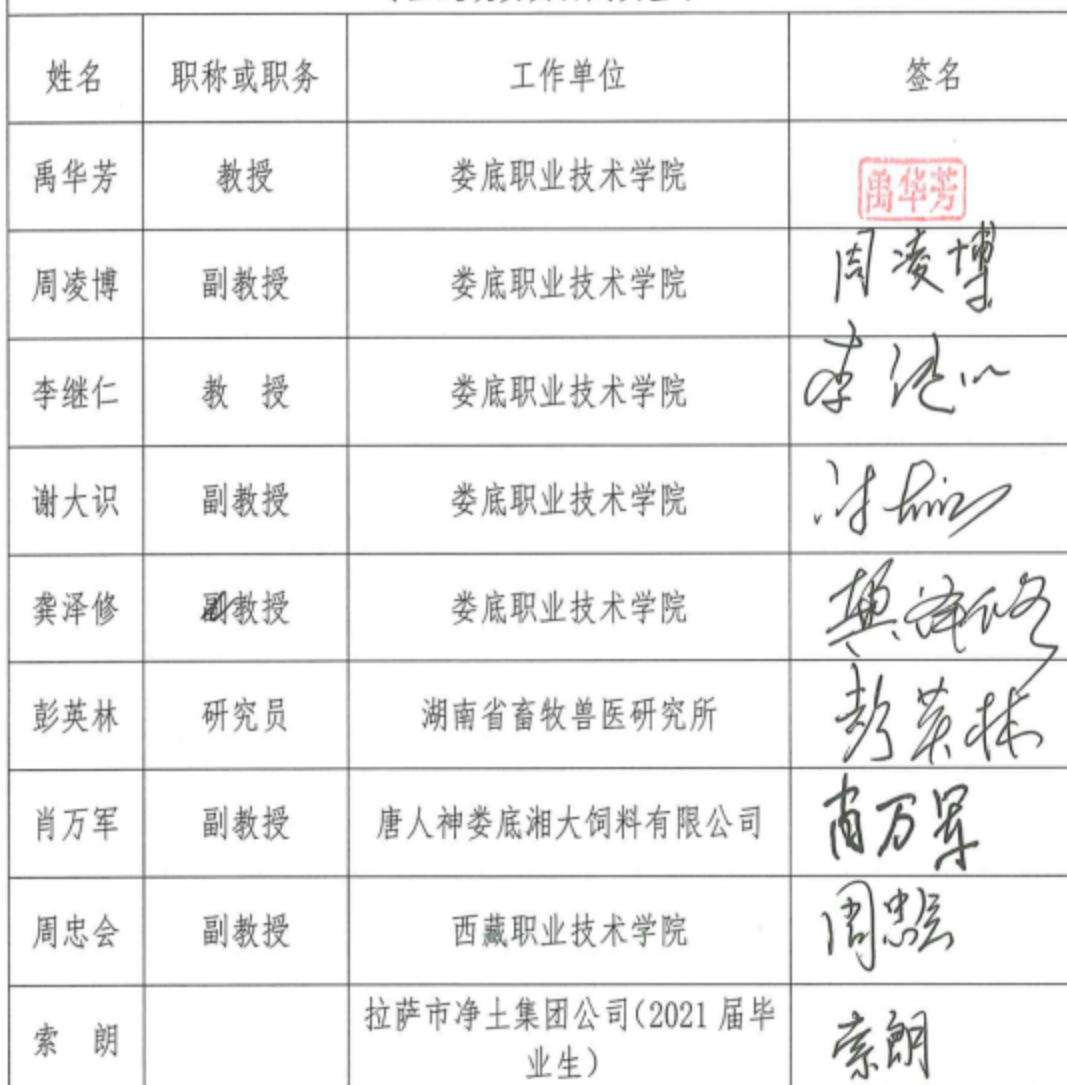 姓名 职称或职务 工作单位 签名
禹华芳 教授 娄底职业技术学院 禹华芳
周凌博 副教授 娄底职业技术学院 周凌博
李继仁 教 授 娄底职业技术学院
谢大识 副教授 娄底职业技术学院
龚泽修 教授 娄底职业技术学院 龚泽修
彭英林 研究员 湖南省畜牧兽医研究所 彭英林
肖万军 副教授 唐人神娄底湘大饲料有限公司 肖万军
周忠会 副教授 西藏职业技术学院 周忠会
索 朗 拉萨市净土集团公司(2021 届毕 索朗
业生)